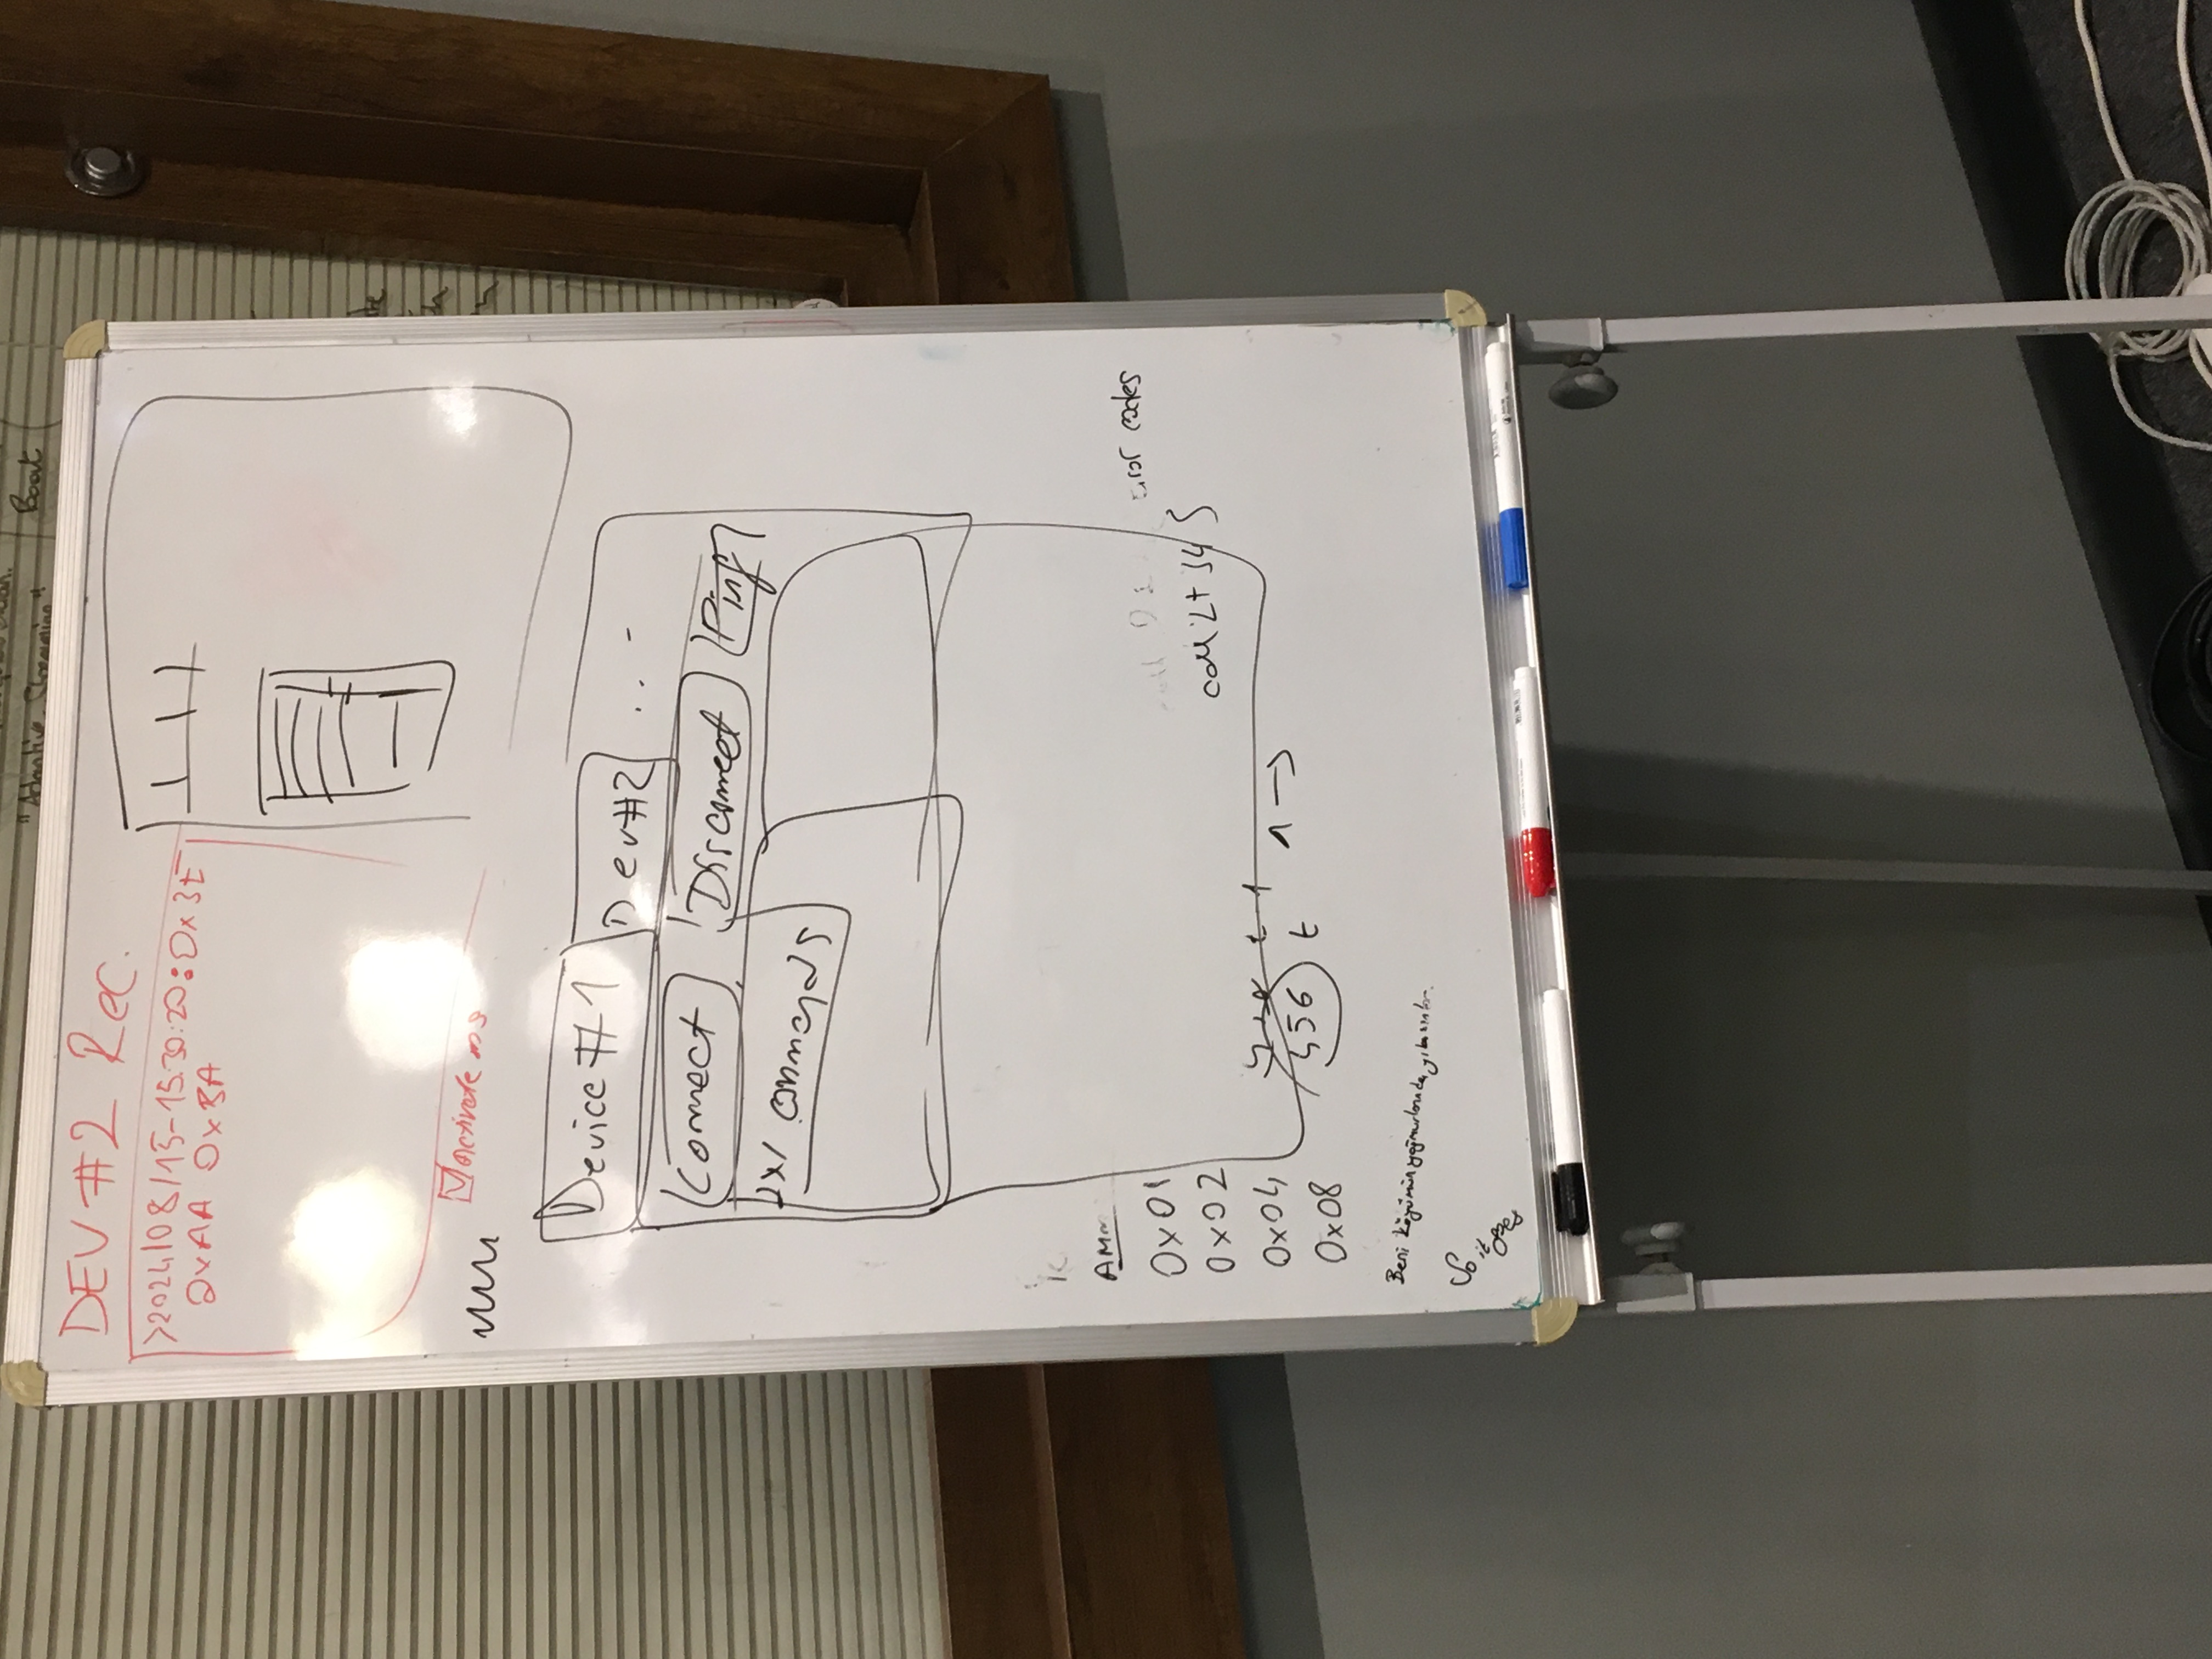 "Adaptive Streaming"
Boot
DEV #2 Rec.
>2024/08/15-15:30:20:0x3E
0xAA 0xBA
activate ms
Device #1
Dev#2
...
Connect
Disconnect
Ping
commands
0x01
0x02
0x04
0x08
error codes
456
t
1 →
Beni köyümün yağmurlarında yıkasınlar.
So it goes